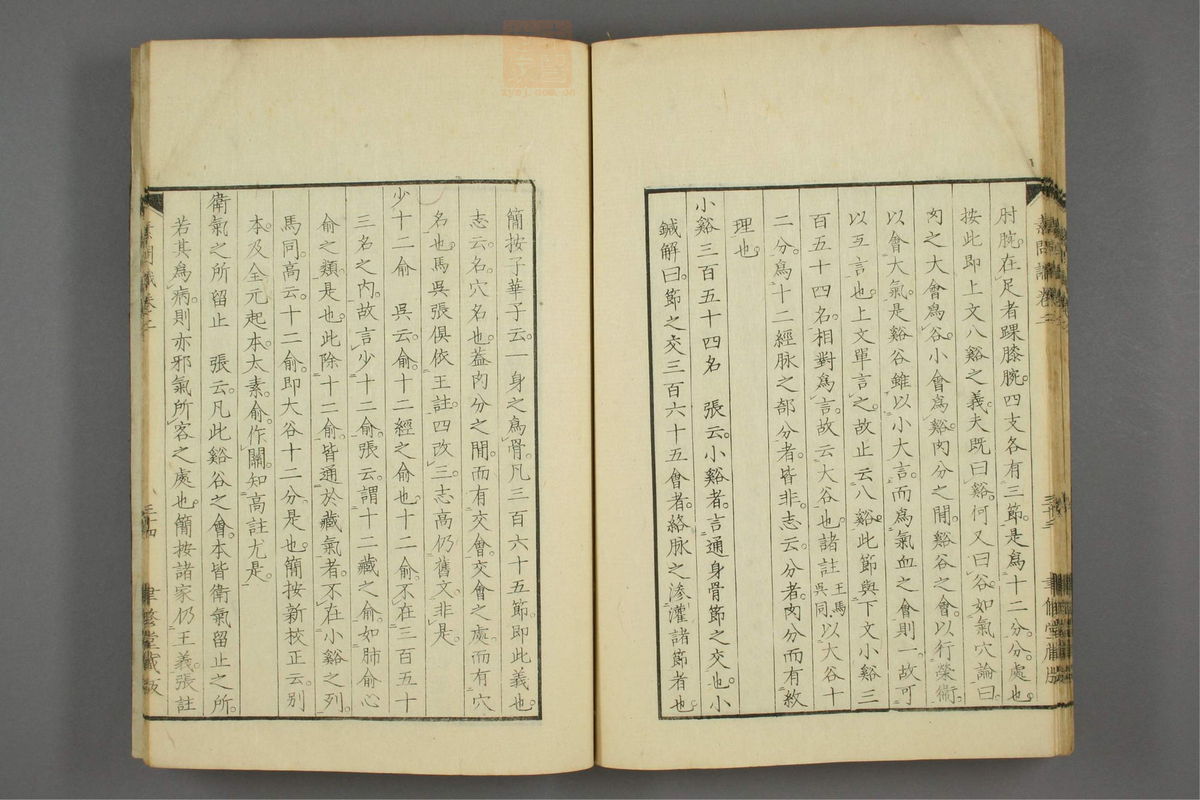 肘腕。在足者踝膝腕。四支各有三節。是爲十二分。分。處也。
按此即上文八谿之義。夫既曰谿。何又曰谷。如氣穴論曰。
肉之大會爲谷。小會爲谿。肉分之閒。谿谷之會。以行榮衞。
以會大氣。是谿谷雖以小大言。而爲氣血之會則一。故可
以互言也。上文單言之。故止云八谿。此節與下文小谿三
百五十四名。相對爲言。故云大谷也。諸註王馬吳同以大谷十
二分。爲十二經脉之部分者。皆非。志云。分者。肉分而有紋
理也。
小谿三百五十四名 張云。小谿者。言通身骨節之交也。小
鍼解曰。節之交三百六十五會者。絡脉之滲灌諸節者也。
簡按子華子云。一身之爲骨。凡三百六十五節。即此義也。
志云。名。穴名也。蓋肉分之閒。而有交會。交會之處。而有穴
名也。馬吳張俱依王註。四改三。志高仍舊文。非是。
少十二俞 吳云。俞。十二經之俞也。十二俞。不在三百五十
三名之內。故言少十二俞。張云。謂十二藏之俞。如肺俞心
俞之類是也。此除十二俞。皆通於藏氣者。不在小谿之列。
馬同。高云。十二俞。即大谷十二分。是也。簡按新校正云。別
本。及全元起本。太素。俞。作關。知高註尤是。
衞氣之所留止 張云。凡此谿谷之會。本皆衞氣留止之所。
若其爲病。則亦邪氣所客之處也。簡按諸家仍王義。張註
素問識卷二
三十四
聿修堂藏版